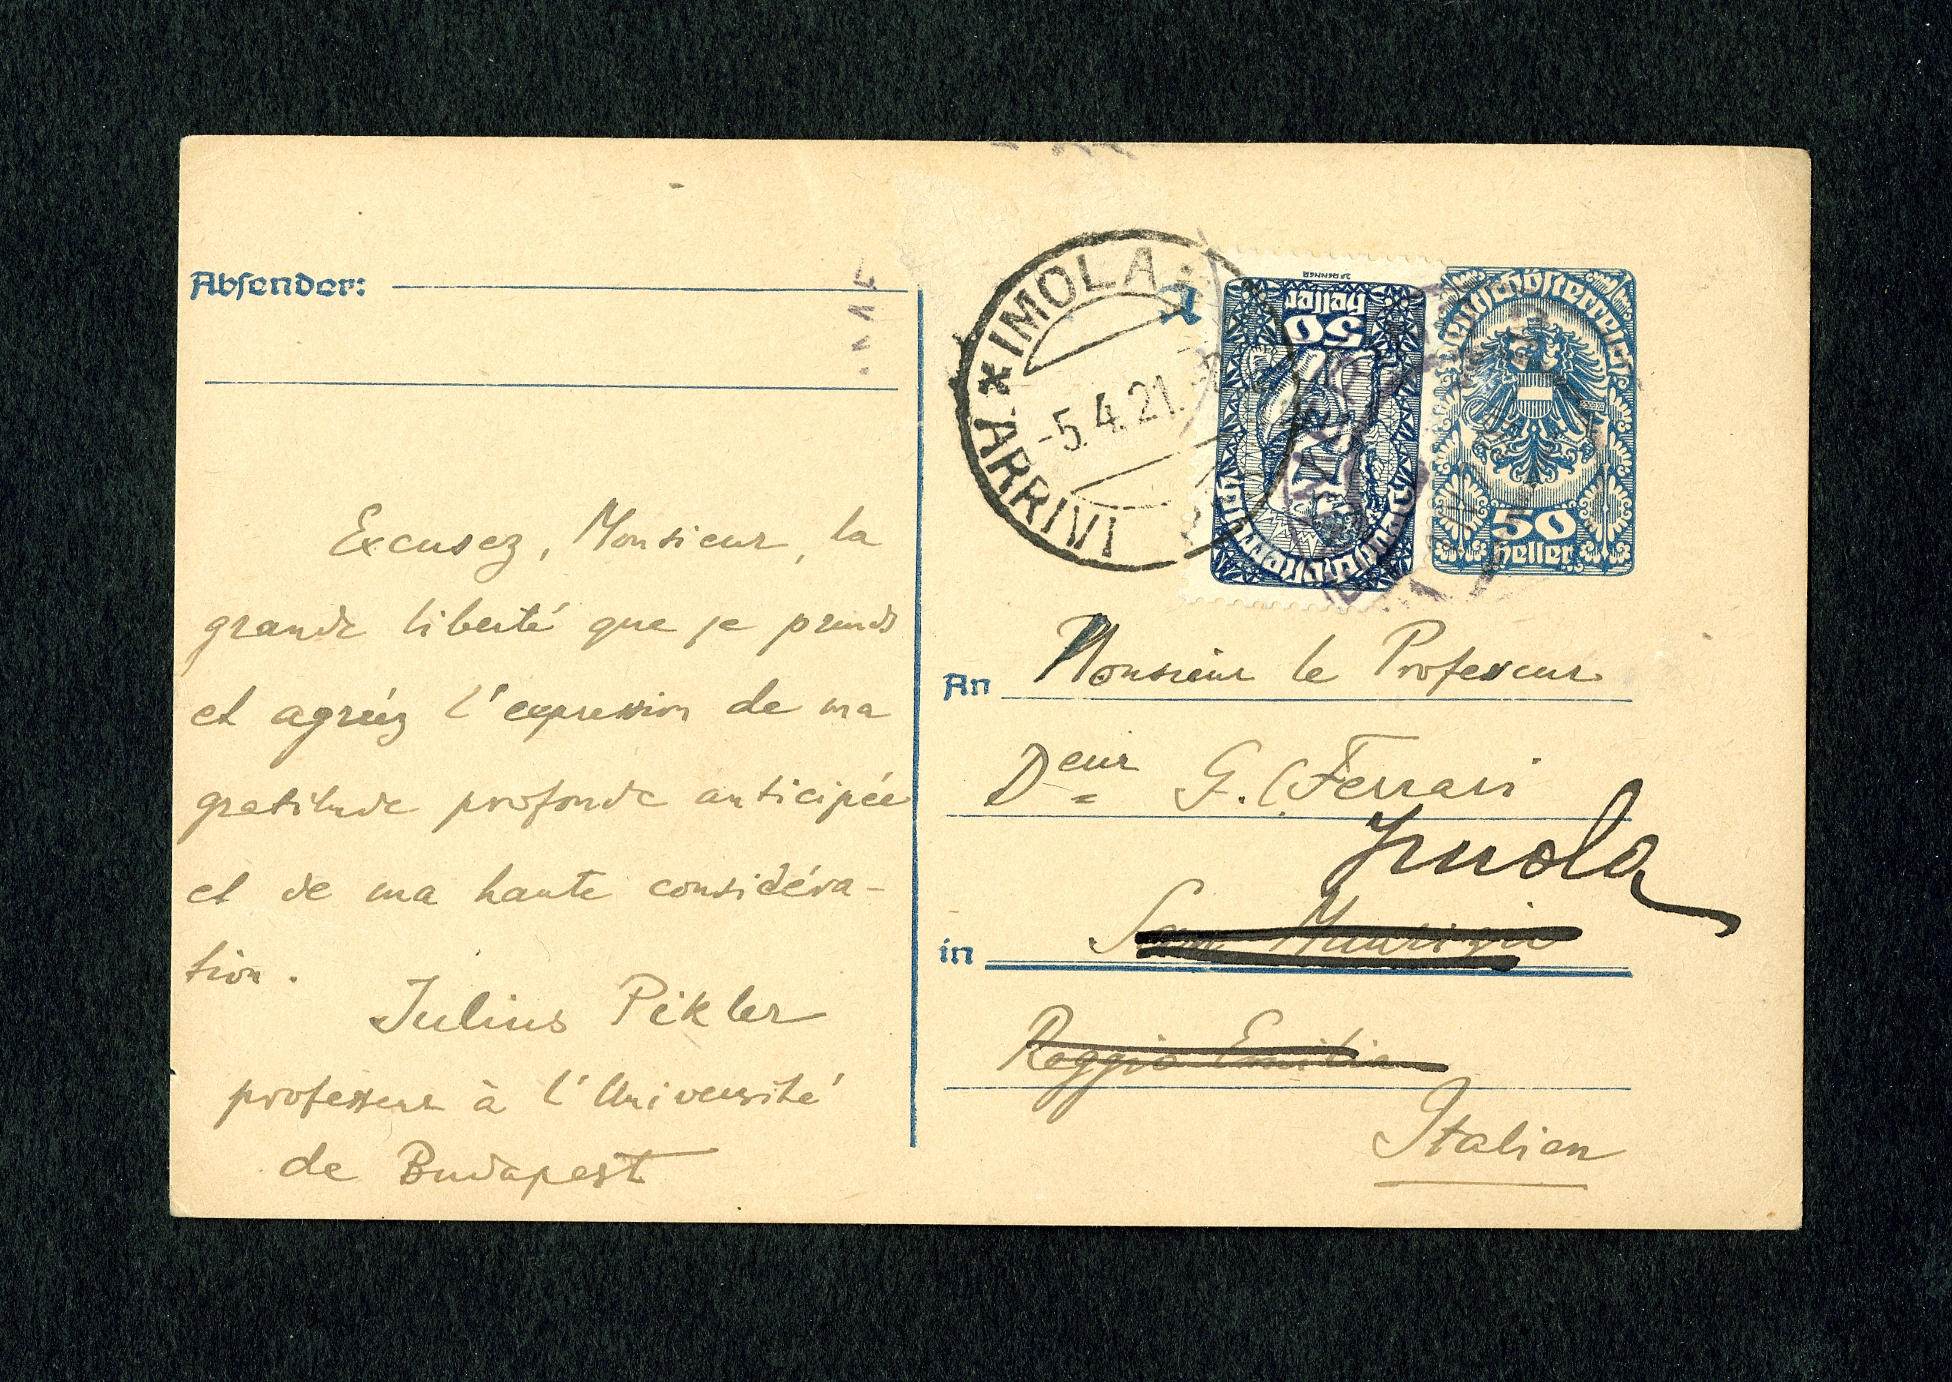 Absender:
Excusez, Monsieur, la
grande liberté que je prends
et agréez l'expression de ma
gratitude profonde anticipée
et de ma haute considéra-
tion.
Julius Pikler
professeur à l'Université
de Budapest
* IMOLA
-5.4.21.
ARRIVI
50
Heller
Deutschösterreich
Deutschösterreich
50
Heller
An Monsieur le Professeur
Deur G. C. Ferrari
Imola
in San Maurizio
Reggio Emilia
Italien